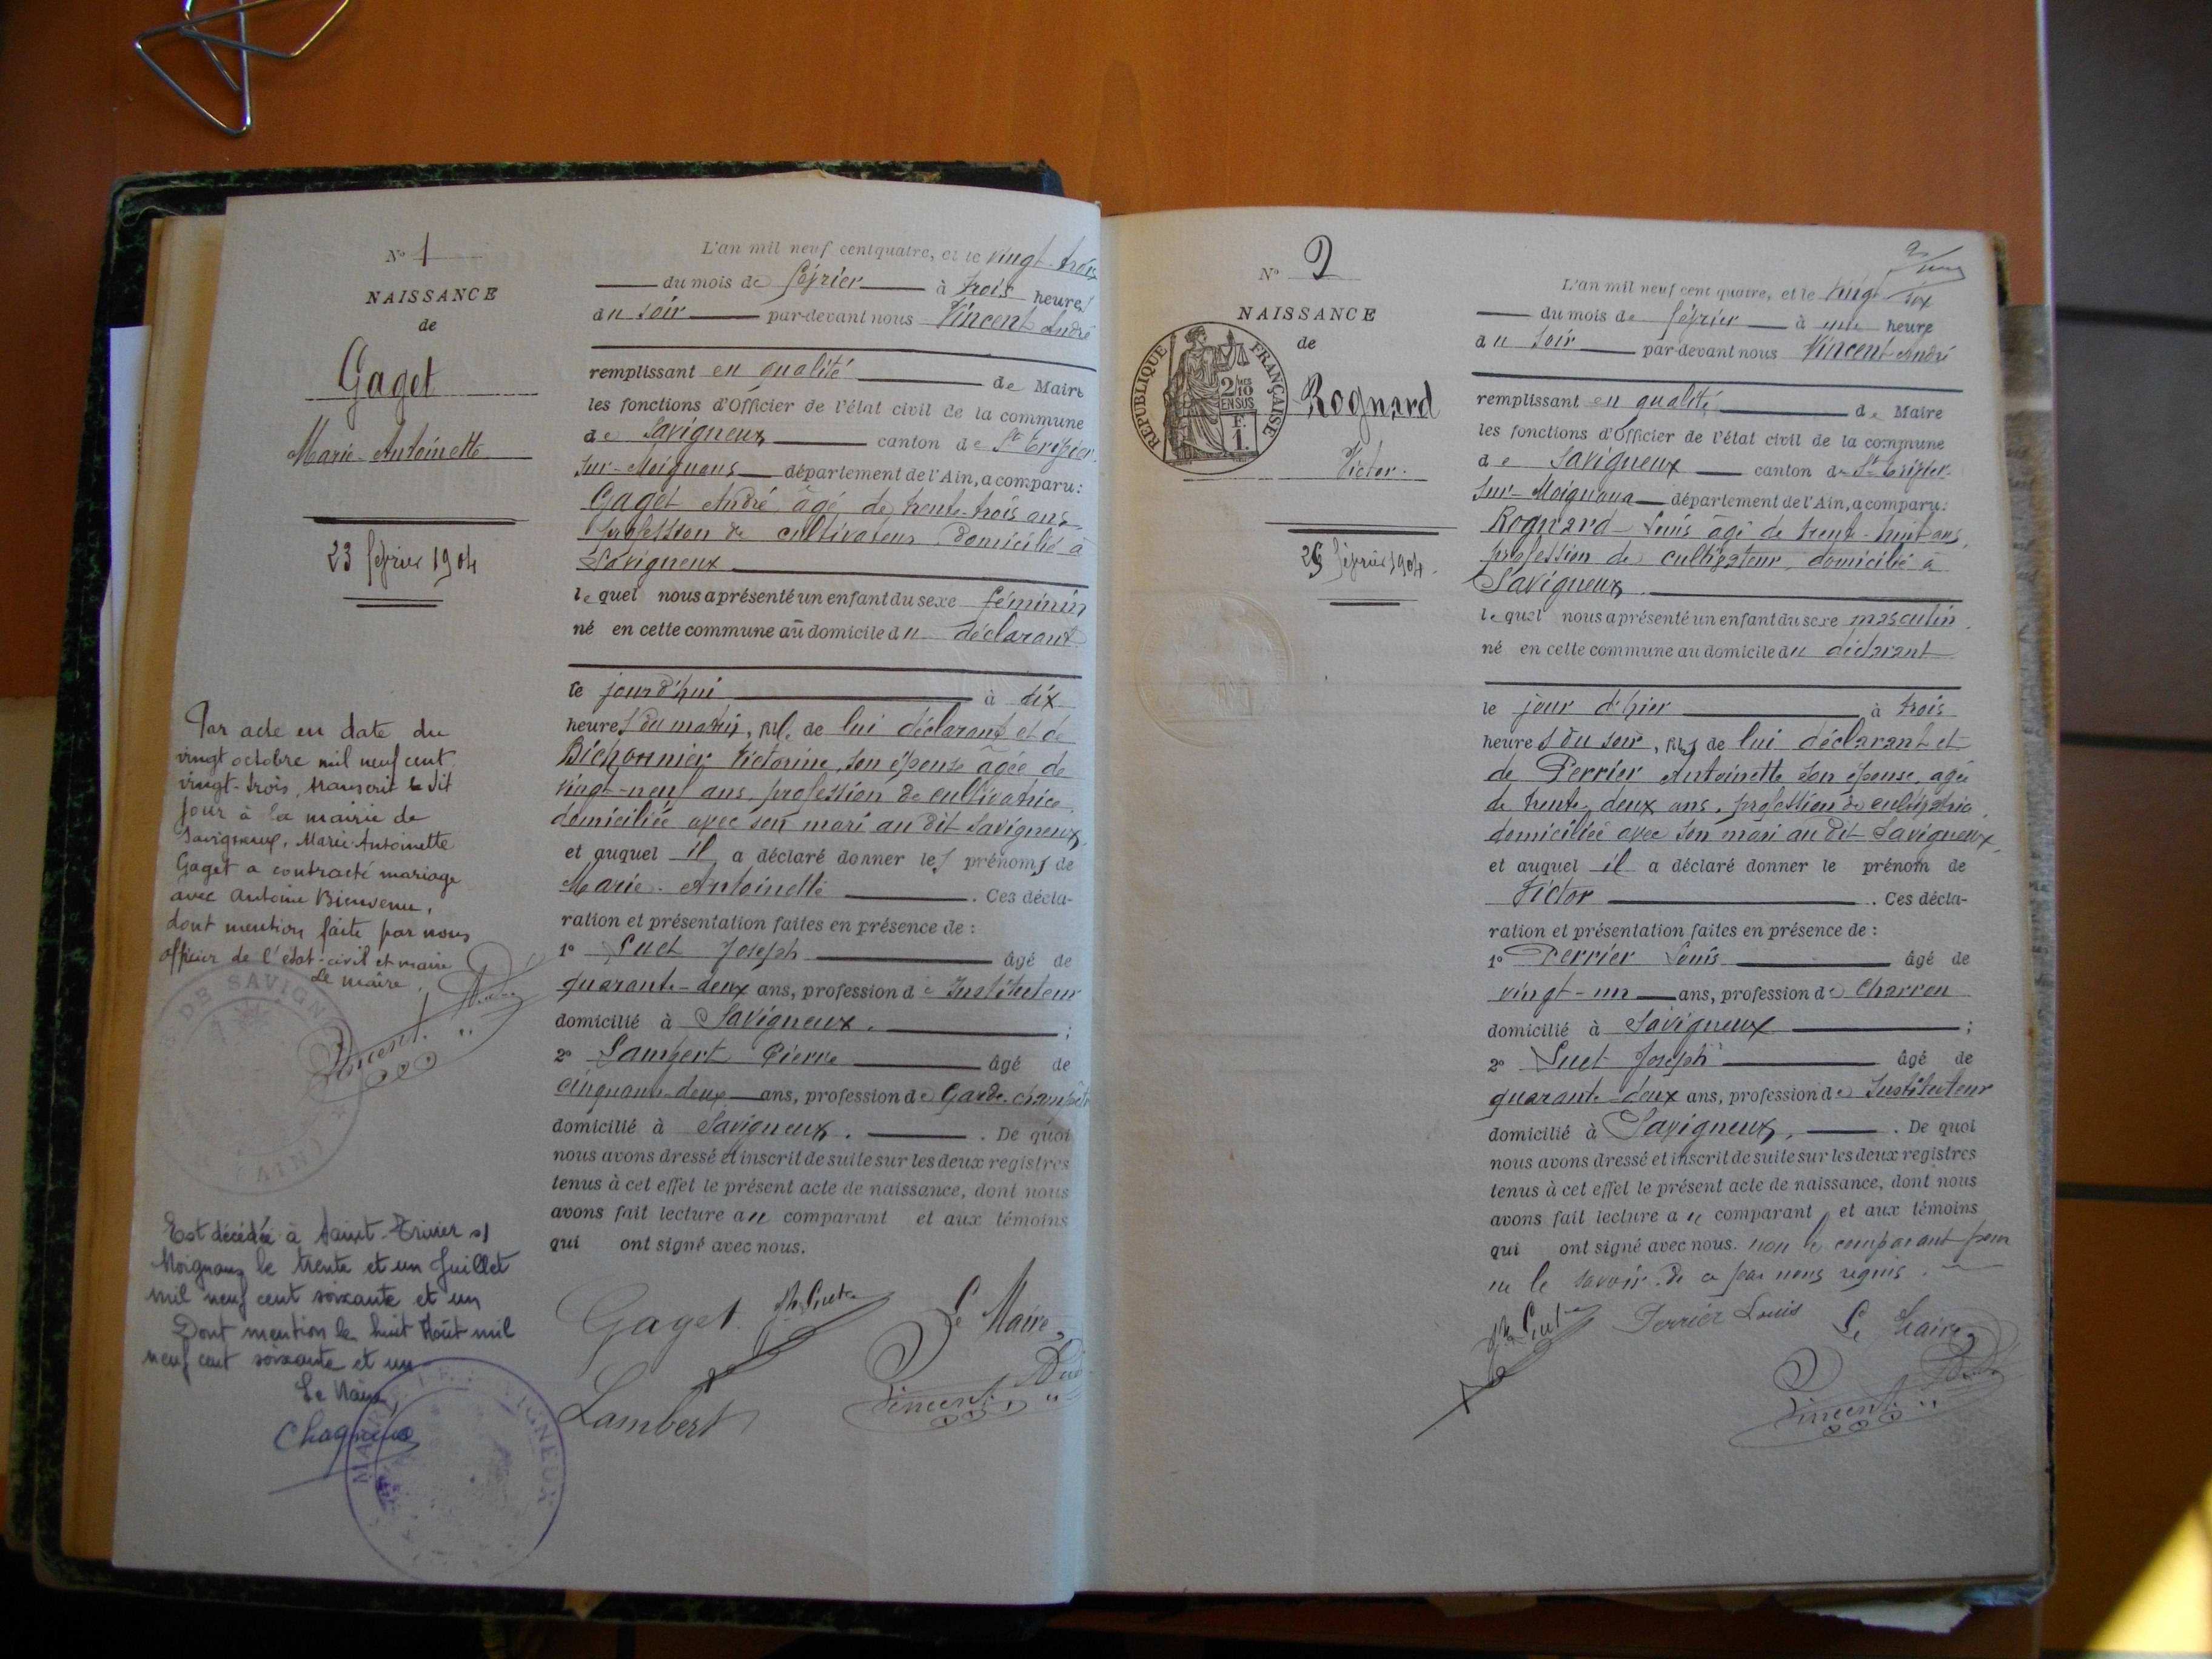 N° 1
NAISSANCE
de
Gaget
Marie-Antoinette
23 février 1904
Par acte en date du
vingt octobre mil neuf cent
vingt-trois, transcrit le dit
jour à la mairie de
Savigneux, Marie-Antoinette
Gaget a contracté mariage
avec Antoine Bienvenu,
dont mention faite par nous
officier de l'état-civil et maire
Le maire,
Vincent
DE SAVIGN
(AIN)
Est décédée à Saint-Trivier s/
Moignans le trente et un Juillet
mil neuf cent soixante et un
Dont mention le huit Août mil
neuf cent soixante et un
Le Maire,
L'an mil neuf cent quatre, et le vingt-trois
du mois de février à trois heures
du soir par-devant nous Vincent André
remplissant en qualité de Maire
les fonctions d'Officier de l'état civil de la commune
de Savigneux canton de St Trivier-
sur-Moignans département de l'Ain, a comparu:
Gaget André âgé de trente-trois ans
profession de cultivateur domicilié à
Savigneux
lequel nous a présenté un enfant du sexe féminin
né en cette commune au domicile du déclarant
le jourd'hui à dix
heures du matin, fille de lui déclarant et de
Bichonnier Victorine, son épouse âgée de
vingt-neuf ans, profession de cultivatrice
domiciliée avec son mari au dit Savigneux,
et auquel il a déclaré donner les prénoms de
Marie-Antoinette. Ces décla-
ration et présentation faites en présence de :
1° Suet Joseph âgé de
quarante-deux ans, profession de Instituteur
domicilié à Savigneux. ;
2° Lambert Pierre âgé de
cinquante-deux ans, profession de Garde-champêtre
domicilié à Savigneux. . De quoi
nous avons dressé et inscrit de suite sur les deux registres
tenus à cet effet le présent acte de naissance, dont nous
avons fait lecture au comparant et aux témoins
qui ont signé avec nous.
Gaget. Suet Le Maire,
Lambert Vincent
N° 2
NAISSANCE
de
RÉPUBLIQUE FRANÇAISE
2/10
EN SUS
F.
1.
Rognard
Victor.
26 février 1904.
L'an mil neuf cent quatre, et le vingt-six
du mois de février à une heure
du soir par-devant nous Vincent André
remplissant en qualité de Maire
les fonctions d'Officier de l'état civil de la commune
de Savigneux canton de St Trivier-
sur-Moignans département de l'Ain, a comparu:
Rognard Louis âgé de trente-huit ans,
profession de cultivateur, domicilié à
Savigneux.
lequel nous a présenté un enfant du sexe masculin
né en cette commune au domicile du déclarant
le jour d'hier à trois
heures du soir, fils de lui déclarant et
de Perrier Antoinette son épouse, agée
de trente-deux ans, profession de cultivatrice
domiciliée avec son mari au dit Savigneux,
et auquel il a déclaré donner le prénom de
Victor. Ces décla-
ration et présentation faites en présence de :
1° Perrier Louis âgé de
vingt-un ans, profession de Charron
domicilié à Savigneux ;
2° Suet Joseph âgé de
quarante-deux ans, profession de Instituteur
domicilié à Savigneux, . De quoi
nous avons dressé et inscrit de suite sur les deux registres
tenus à cet effet le présent acte de naissance, dont nous
avons fait lecture au comparant et aux témoins
qui ont signé avec nous. non le comparant pour
ne le savoir de ce par nous requis.
Suet Perrier Louis Le Maire
Vincent